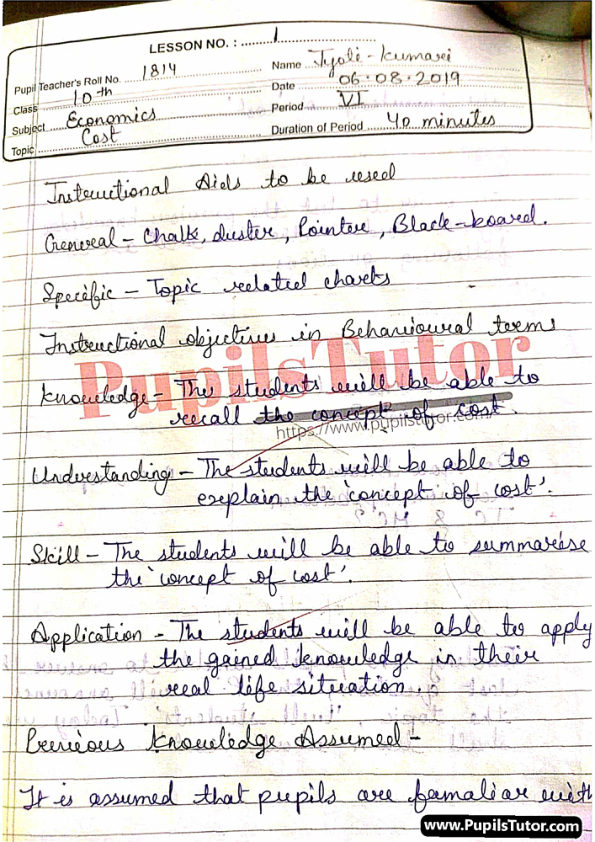 LESSON NO. : 1
Pupil Teacher's Roll No. 1814 Name Jyoti-Kumari
Class 10th Date 06.08.2019
Subject Economics Period VI
Topic Cost Duration of Period 40 minutes
Instructional Aids to be used
General - Chalk, duster, Pointer, Black-board.
Specific - Topic related charts
Instructional objectives in Behavioural terms
PupilsTutor
Knowledge - The students will be able to
recall the concept of cost.
https://www.pupilstutor.com/
Understanding - The students will be able to
explain the 'concept of cost'.
Skill - The students will be able to summarise
the 'concept of cost'.
Application - The students will be able to apply
the gained knowledge in their
real life situation.
Previous Knowledge Assumed -
It is assumed that pupils are familiar with
www.PupilsTutor.com